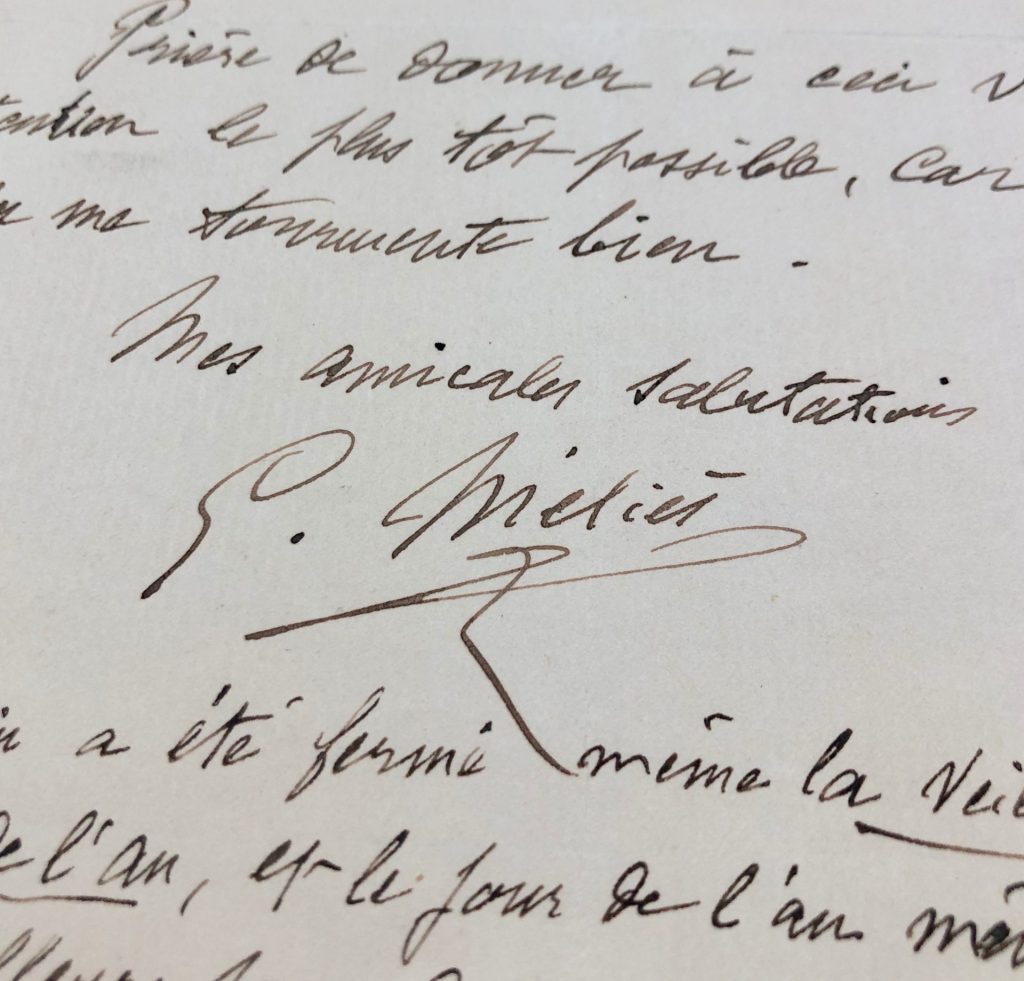 Prière de donner à ceci
tention le plus tôt possible, car
me tourmente bien.
Mes amicales salutations
G. Méliès
a été fermé même la Veil
de l'an, et le jour de l'an mê